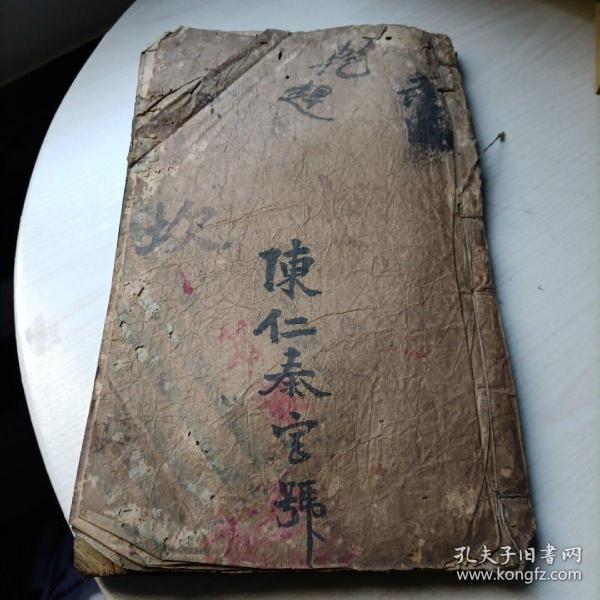 坎
陳仁泰宝號
孔夫子旧書网
www.kongfz.com